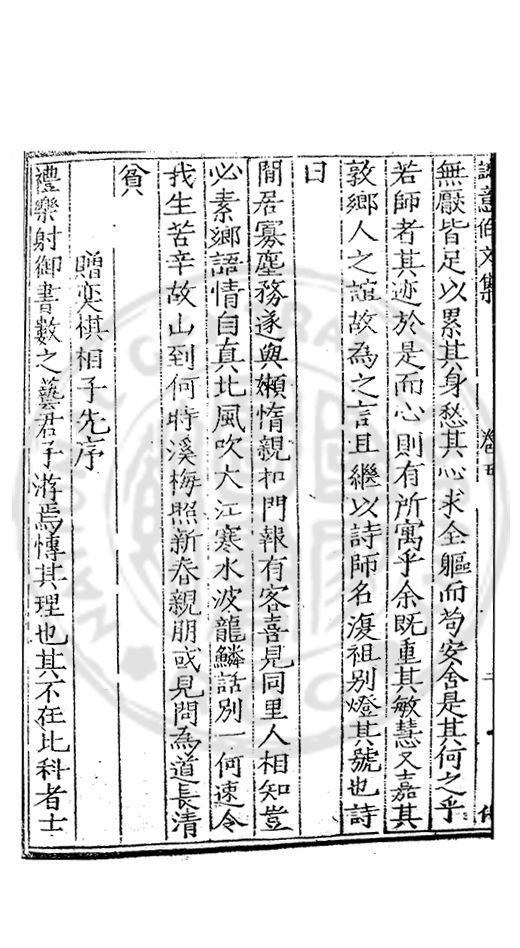 誠意伯文集 卷五
無厭皆足以累其身愁其心求全軀而苟安舍是其何之乎
若師者其迹於是而心則有所寓乎余旣重其敏慧又嘉其
敦鄉人之誼故為之言且繼以詩師名復祖别燈其號也詩
曰
閒居寡塵務遂與嬾惰親扣門報有客喜見同里人相知豈
必素鄉語情自真北風吹大江寒水波龍鱗話别一何速令
我生苦辛故山到何時溪梅照新春親朋或見問為道長清
貧
贈奕棋相子先序
禮樂射御書數之藝君子游焉慱其理也其不在此科者士